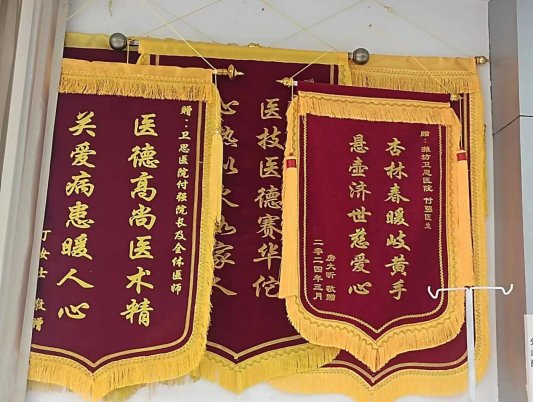 赠：卫思医院付强院长及全体医师
医德高尚医术精
关爱病患暖人心
丁女士 敬赠
医技医德赛华佗
赠：潍坊卫思医院 付强医生
杏林春暖岐黄手
悬壶济世慈爱心
房大昕 敬赠
二零二四年三月